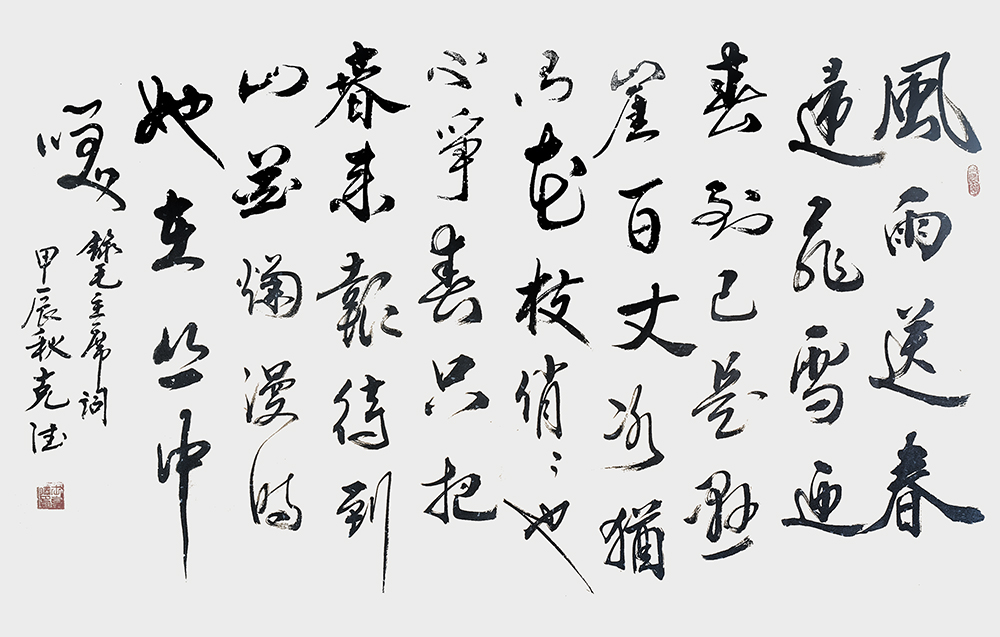 風雨送春
歸飛雪迎
春到已是懸
崖百丈冰猶
有花枝俏々也
不爭春只把
春来報待到
山花爛漫時
她在丛中
笑
錄毛主席词
甲辰秋克